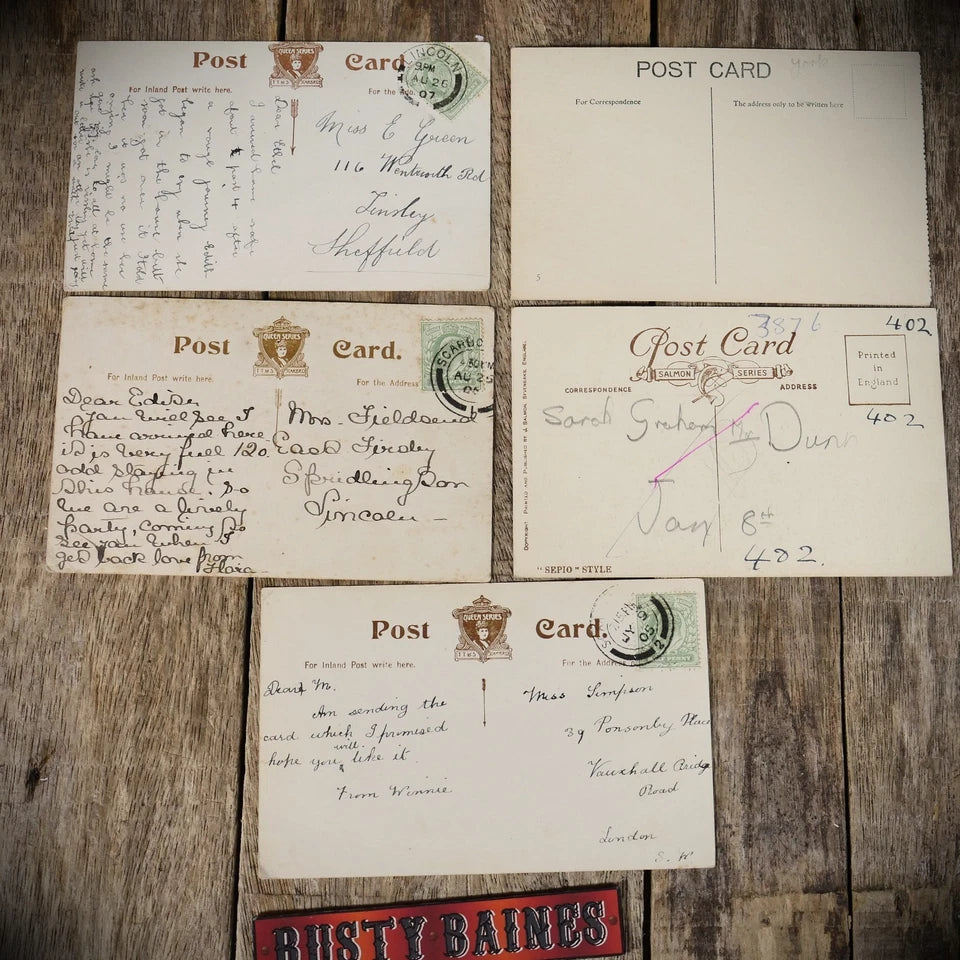 Post Card
QUEEN SERIES
For Inland Post write here.
For the Add
LINCOLN
9 PM
AU 26
07
Dear Ethel
I arrived home safe
about past 4 after
a rough journey Edith
began to cry when she
got in the house but
soon got over it I told
her it was no use her
crying
Miss E Green
116 Wentworth Rd
Tinsley
Sheffield
POST CARD
York
For Correspondence
The address only to be written here
5
Post Card.
QUEEN SERIES
For Inland Post write here.
For the Address
SCARBO
AU 25
Dear Edith
You will see I
have arrived here
it is very full 120
odd staying in
this house. So
we are a lively
party, coming to
see you when I
get back love from
Flora
Mrs. Fieldsend
East Firsby
Spridlington
Lincoln
3876
402
Post Card
SALMON SERIES
CORRESPONDENCE
ADDRESS
Printed
in
England
402
COPYRIGHT. PRINTED AND PUBLISHED BY J. SALMON SEVENOAKS, ENGLAND.
Sarah Graham Mr Dunn
Jan 8th
402.
"SEPIO" STYLE
Post Card.
QUEEN SERIES
For Inland Post write here.
For the Address
JY
05
2
Dear M.
Am sending the
card which I promised
hope you will like it.
From Winnie
Miss Simpson
39 Ponsonby Place
Vauxhall Bridge
Road
London
S. W
RUSTY BAINES